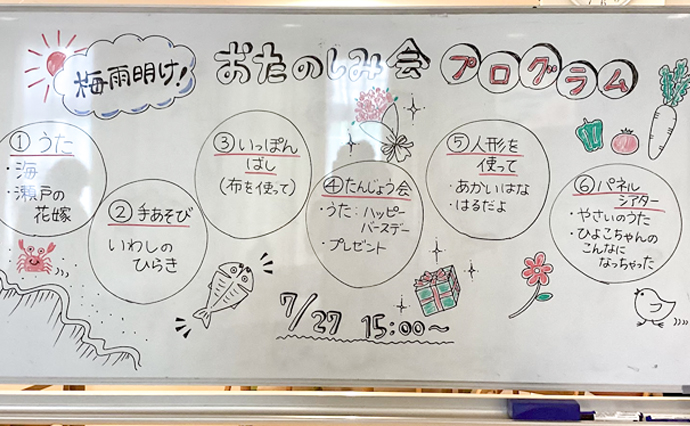 梅雨明け!
おたのしみ会 プログラム
① うた
・海
・瀬戸の
花嫁
② 手あそび
いわしの
ひらき
③ いっぽん
ばし
(布を使って)
④ たんじょう会
・うた:ハッピー
バースデー
・プレゼント
⑤ 人形を
使って
・あかいはな
・はるだよ
⑥ パネル
シアター
・やさいのうた
・ひよこちゃんの
こんなに
なっちゃった
7/27 15:00〜